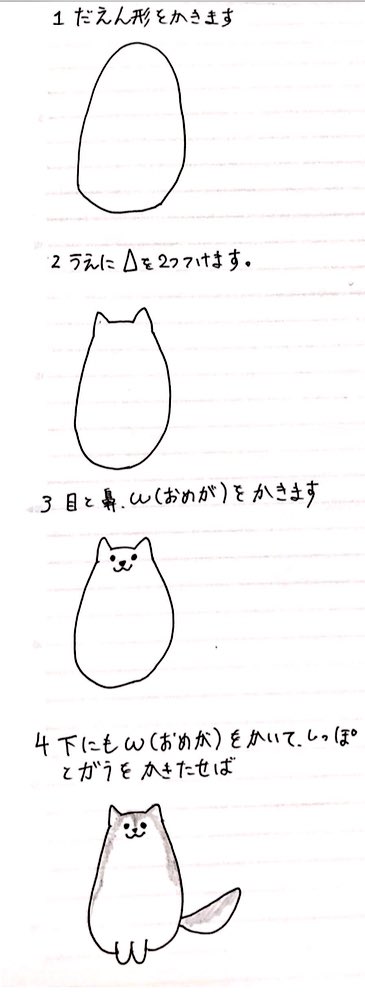 1 だえん形をかきます
2 うえに △を2つつけます。
3 目と鼻、ω(おめが)をかきます
4 下にもω(おめが)をかいて、しっぽ
とガラをかきたせば